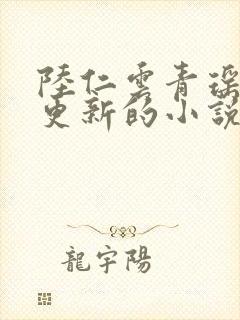 陸仁雲青瑤
更新的小說
龍宇陽